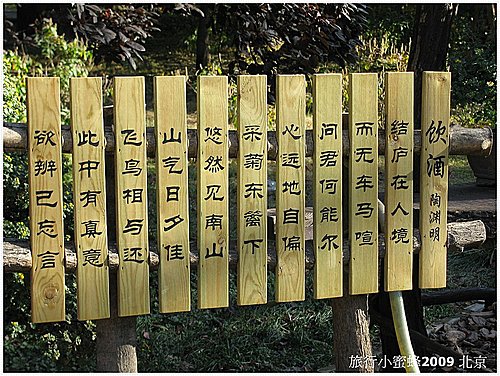 饮酒 陶渊明
结庐在人境
而无车马喧
问君何能尔
心远地自偏
采菊东篱下
悠然见南山
山气日夕佳
飞鸟相与还
此中有真意
欲辨己忘言
旅行小蜜蜂2009 北京